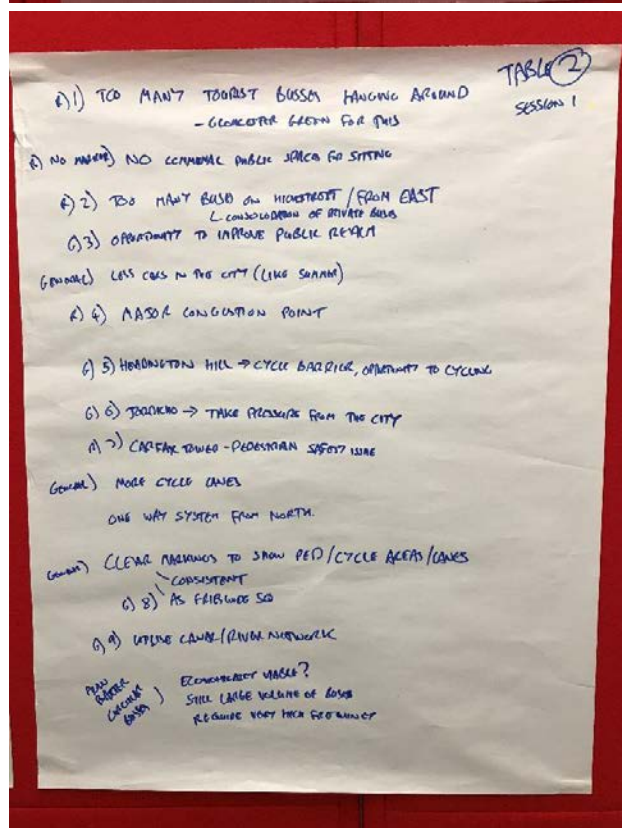 TABLE 2
SESSION 1
R) 1) TOO MANY TOURIST BUSSES HANGING AROUND
- GLOUCESTER GREEN FOR THIS
R) NO MARKER) NO COMMUNAL PUBLIC SPACES FOR SITTING
R) 2) TOO MANY BUSES ON HIGHSTREET / FROM EAST
CONSOLODATION OF PRIVATE BUSES
G) 3) OPPORTUNITY TO IMPROVE PUBLIC REALM
GENERAL) LESS CARS IN THE CITY (LIKE
R) 4) MAJOR CONGESTION POINT
G) 5) HEADINGTON HILL → CYCLE BARRIER, OPPORTUNITY TO CYCLING
G) 6) JERICHO → TAKE PRESSURE FROM THE CITY
R) 7) CARFAX TOWER - PEDESTRIAN SAFETY ISSUE
GENERAL) MORE CYCLE LANES
ONE WAY SYSTEM FROM NORTH.
GENERAL) CLEAR MARKINGS TO SHOW PED/CYCLE AREAS/LANES
CONSISTENT
G) 8) AS FRIDESWIDE SQ
G) 9) UTILISE CANAL/RIVER NETWORK
BUSES) ECONOMICALLY VIABLE?
STILL LARGE VOLUME OF BUSES
REQUIRE VERY HIGH FREQUENCY